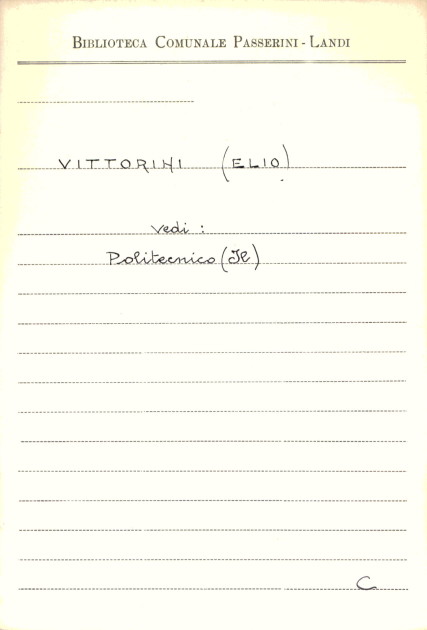 BIBLIOTECA COMUNALE PASSERINI - LANDI
VITTORINI (ELIO)
vedi :
Politecnico (Il)
C